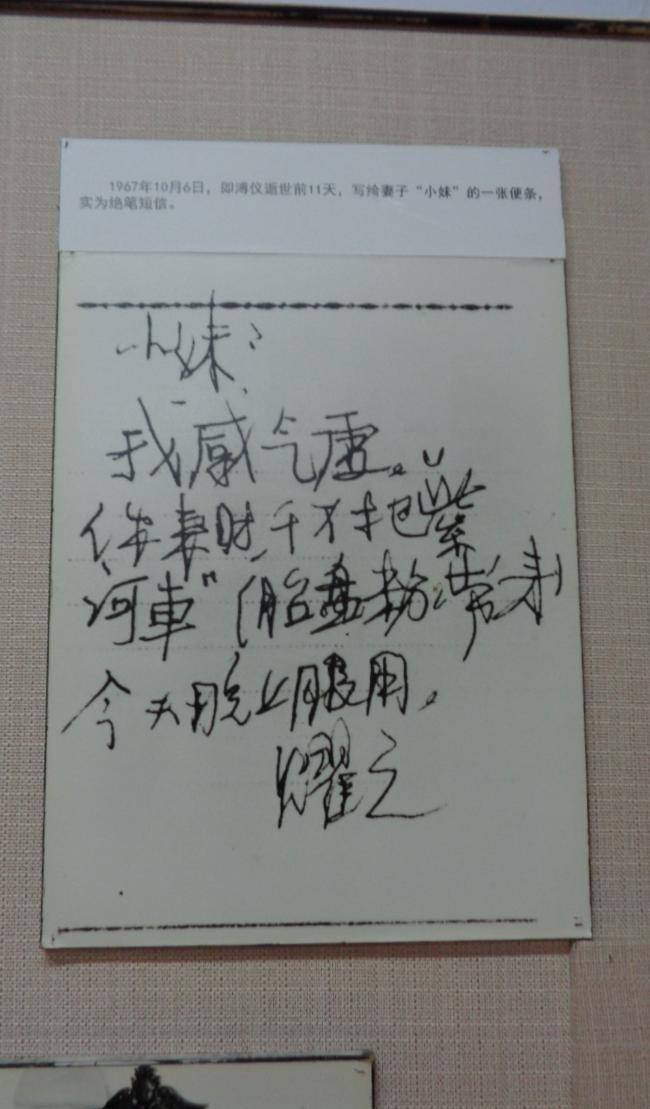 1967年10月6日，即溥仪逝世前11天，写给妻子“小妹”的一张便条，
实为绝笔短信。
小妹：
我感气虚。
你来时,千万把“紫
河车”（胎盘粉）带来
今天晚上服用。
耀之